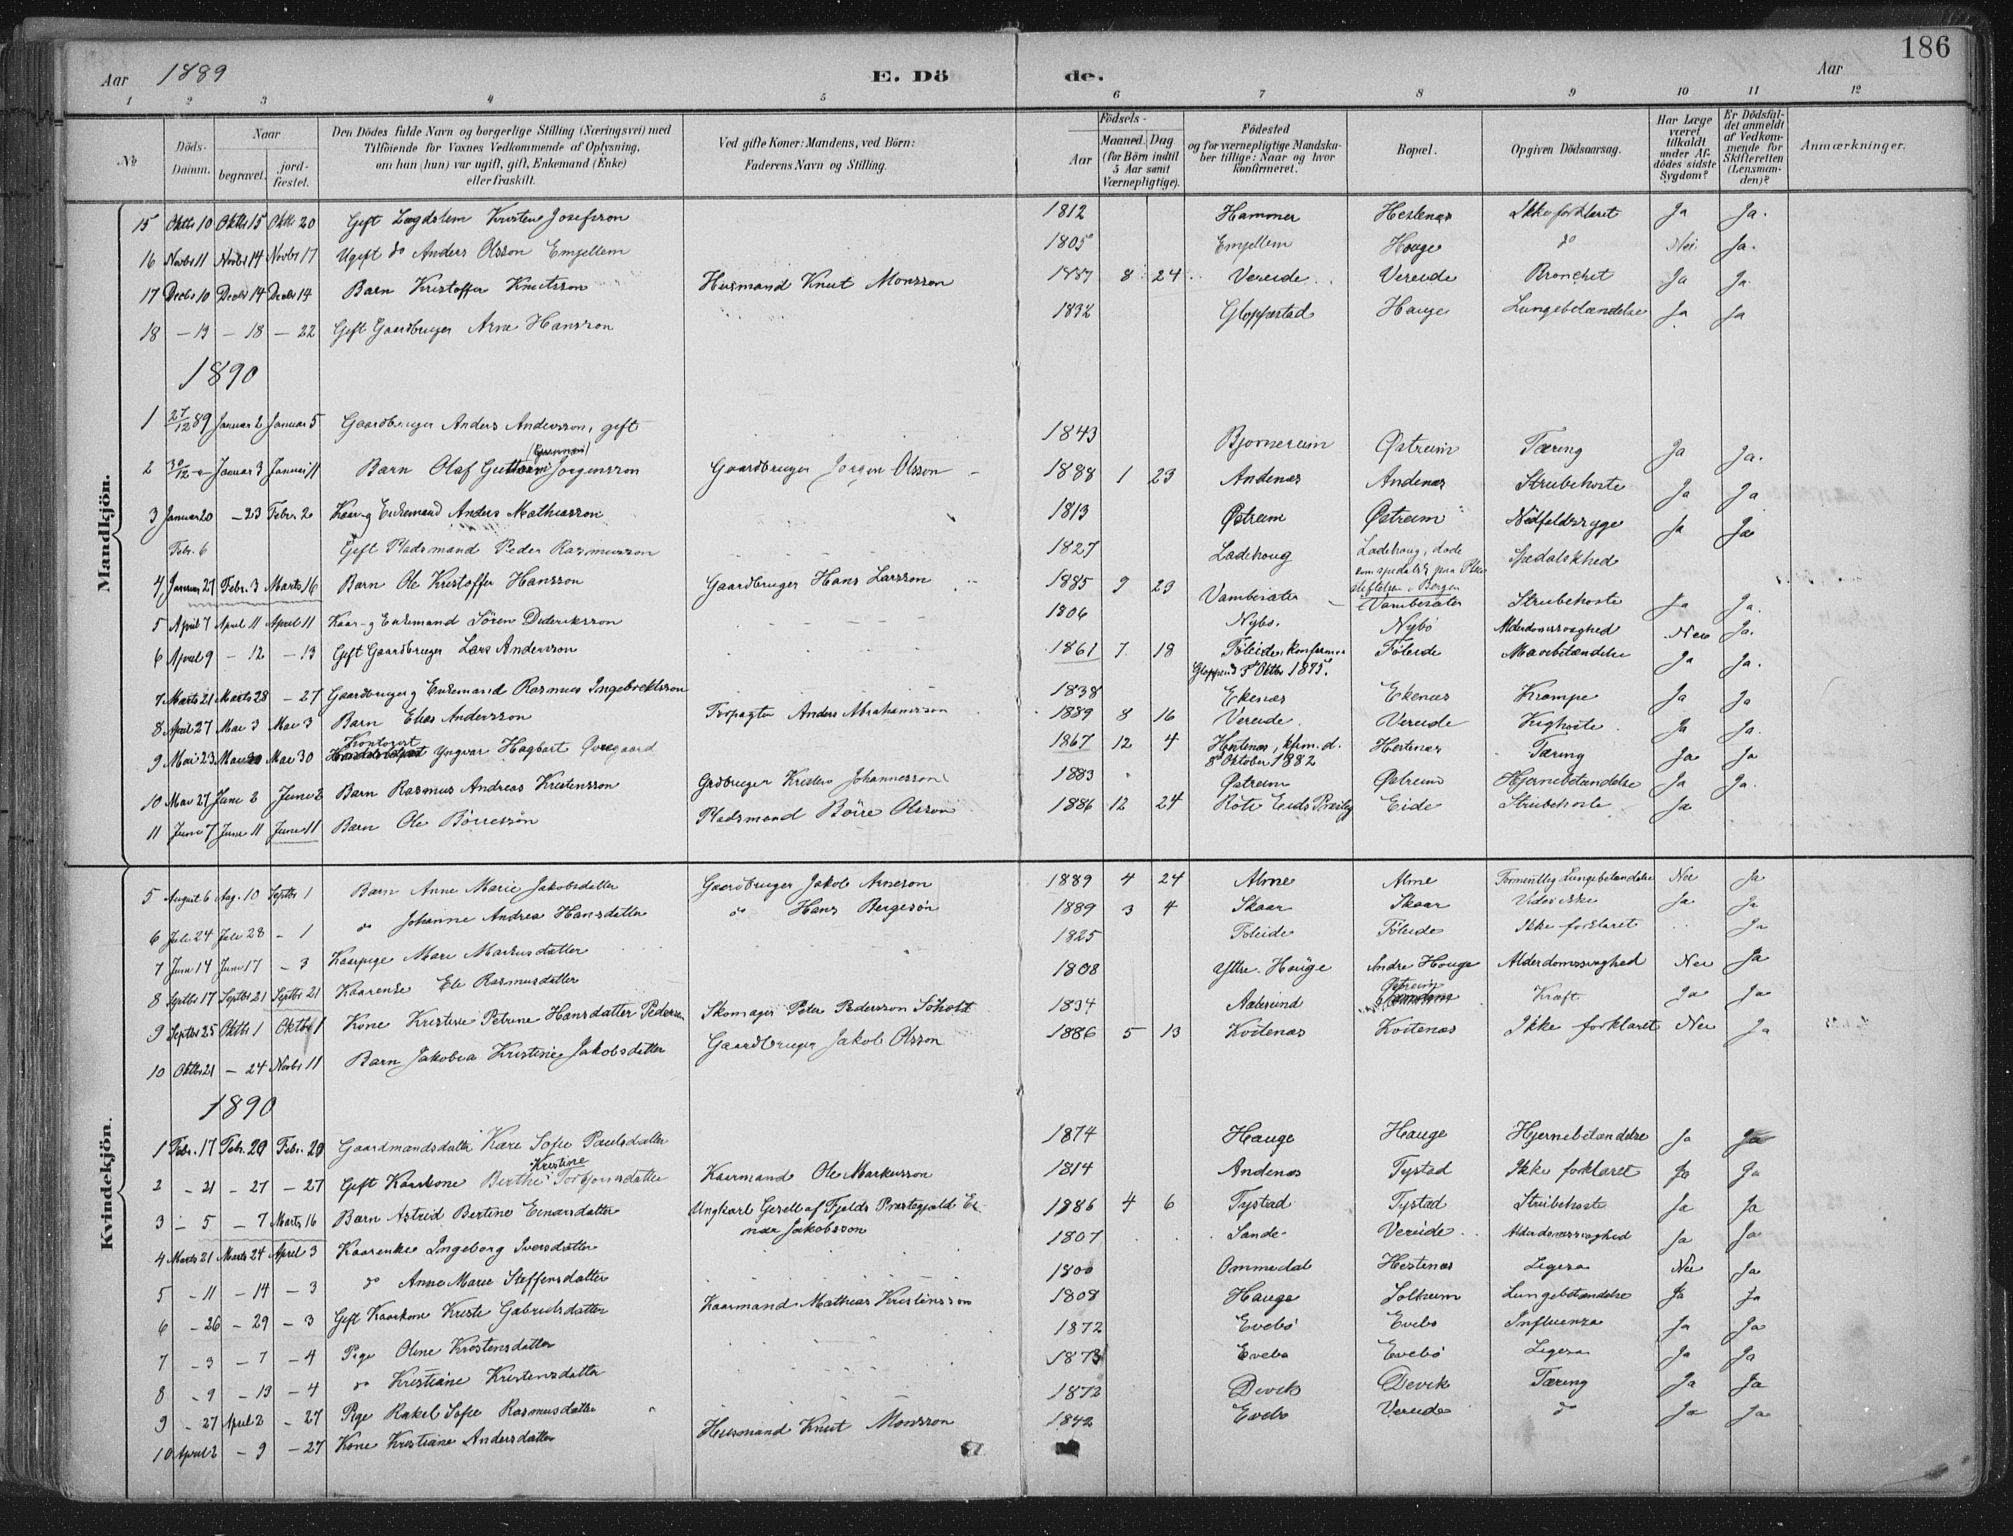 186
Aar 1889 E. Dö de. Aar
1 2 3 4 5 6 7 8 9 10 11 12
No
Döds-Datum.
Naar
begravet.
jord-fæstet.
Den Dödes fulde Navn og borgerlige Stilling (Næringsvei) med
Tilföiende for Voxnes Vedkommende af Oplysning,
om han (hun) var ugift, gift, Enkemand (Enke)
eller fraskilt.
Ved gifte Koner: Mandens, ved Börn:
Faderens Navn og Stilling.
Födsels-
Aar
Maaned Dag
(for Börn indtil
5 Aar samt
Værnepligtige).
Födested
og for værnepligtige Mandska-
ber tillige: Naar og hvor
konfirmeret.
Bopæl.
Opgiven Dödsaarsag.
Har Læge
været
tilkaldt
under Af-
dödes sidste
Sygdom?
Er Dödsfal-
det anmeldt
af Vedkom-
mende for
Skifteretten
(Lensman-
den)?
Anmærkninger.
Mandkjön.
15 Oktbr 10 Oktbr 15 Oktbr 20 Gift Lægdslem Kristen Josefsson 1812 Hammer Hestenæs Ikke forklaret Ja Ja.
16 Novbr 11 Novbr 14 Novbr 17 Ugift do Anders Olsson Emjellem 1805 Emjellem Houge do Nei Ja.
17 Decbr 10 Decbr 14 Decbr 14 Barn Kristoffer Knutsson Husmand Knut Monsson 1887 8 24 Vereide Vereide Bronchet Ja Ja.
18 - 13 - 18 - 22 Gift Gaardbruger Arne Hansson 1832 Gloppestad Hauge Lungebetændelse Ja Ja
1890
1 27/12 89 Januar 2 Januar 5 Gaardbruger Anders Andersson, gift 1843 Bjornereim Østreim Tæring Ja Ja.
2 30/12 - Januar 3 Januar 11 Barn Olaf Jorgensson Gaardbruger Jorgen Olsson 1888 1 23 Andenæs Andenæs Strubehoste Ja Ja
3 Januar 20 - 23 Febr. 2 Kaar- og Enkemand Anders Mathiasson 1813 Østreim Østreim Ja Ja
Febr. 6 Gift Pladsmand Peder Rasmusson 1827 Ladehoug Ladehoug, døde
som spedalsk paa Pleie
stiftelsen i Bergen Spedalskhed
4 Januar 27 Febr. 3 Marts 16 Barn Ole Kristoffer Hansson Gaardbruger Hans Larsson 1885 9 23 Vambesæter Vambesæter Strubehoste Ja Ja.
5 April 7 April 11 April 11 Kaar- og Enkemand Sören Dideriksson 1806 Nybø. Nybö Alderdomssvaghed Nei Ja.
6 April 9 - 12 - 13 Gift Gaardbruger Lars Andersson 1861 7 18 Föleide, konfirm
Gloppen d 3 Oktbr 1875. Föleide Mavebetændelse Ja Ja.
7 Marts 21 Marts 28 - 27 Gaardbruger og Enkemand Rasmus Ingebrektsson 1838 Ekenæs Ekenæs Krampe Ja Ja
8 April 27 Mai 3 Mai 3 Barn Elias Andersson Forpagter Anders Abrahamsson 1889 8 16 Vereide. Vereide Kighoste Ja Ja.
9 Mai 23 Mai 30 Mai 30 Kontorist Yngvar Hagbart Øvregaard 1867 12 4 Hestenæs, kfirm. d.
8 Oktober 1882 Hestenæs Tæring Ja Ja
10 Mai 27 Juni 2 Juni 2 Barn Rasmus Andreas Kristensson Grdbruger Kristen Johannesson 1883 Østreim Østreim Hjernebetændelse Ja Ja.
11 Juni 7 Juni 11 Juni 11 Barn Ole Börresson Pladsmand Börre Olsson 1886 12 24 Eide Strubehoste Ja
Kvindekjön.
5 August 6 Aug. 10 Septbr 1 Barn Anne Marie Jakobsdatter Gaardbruger Jakob Arneson 1889 4 24 Alme Alme Formentlig Lungebetændelse Nei Ja
6 Juli 24 Juli 28 - 1 do Johanne Andrea Hansdatter do Hans Bergeson 1889 3 4 Skaar Skaar Ja Ja
7 Juni 14 Juni 17 - 3 Kaarpige Mari Markusdatter 1825 Föleide Föleide Ikke forklaret Ja
8 Septbr 17 Septbr 21 Septbr 21 Kaarenke Eli Rasmusdatter 1808 Yttre Houge Indre Houge Alderdomssvaghed Nei Ja
9 Septbr 25 Oktbr 1 Oktbr 1 Kone Kristine Petrine Hansdatter Pedersen Skomager Peter Pedersson Söholt 1834 Aalesund Østreim Kræft Ja Ja
10 Oktbr 21 - 24 Novbr 11 Barn Jakobea Kristine Jakobsdatter Gaardbruger Jakob Olsson 1886 5 13 Kvitenæs Kvitenæs Ikke forklaret Nei Ja
1890
1 Febr. 17 Febr. 20 Febr. 20 Gaardmandsdatter Kari Sofie Paulsdatter 1874 Hauge Hauge Hjernebetændelse Ja Ja
2 - 21 - 27 - 27 Gift Kaarkone Birthe Kristine Torbjornsdatter Kaarmand Ole Markusson 1814 Andenæs Tystad Ikke forklaret Ja Ja
3 - 5 - 7 Marts 16 Barn Astrid Bertine Einarsdatter Ungkarl Gesell af Fjelds Præstegjeld Ei-
nar Jakobsson 1886 4 6 Tystad Tystad Strubehoste Ja Ja
4 Marts 21 Marts 24 April 3 Kaarenke Ingeborg Iversdatter 1807 Sande Vereide Alderdomssvaghed Ja Ja
5 - 11 - 14 - 3 do Anne Marie Steffensdatter 1800 Ommedal Hestenæs Ligesa Nei Ja
6 - 26 - 29 - 3 Gift Kaarkone Kristi Gabrielsdatter Kaarmand Mathias Kristensson 1808 Hauge Solheim Lungebetændelse Ja Ja
7 - 3 - 7 - 4 Pige Oline Kristensdatter 1872 Evebö Evebö Influenza Ja Ja
8 - 9 - 13 - 4 do Kristiane Kristensdatter 1873 Evebö Evebö Ligesa Ja Ja
9 - 27 April 2 - 27 Pige Rakel Sofie Rasmusdatter 1872 Devik Devik Tæring Ja Ja
10 April 2 - 9 - 27 Kone Kristiane Andersdatter Husmand Knut Monsson 1842 Evebö Vereide do Ja Ja